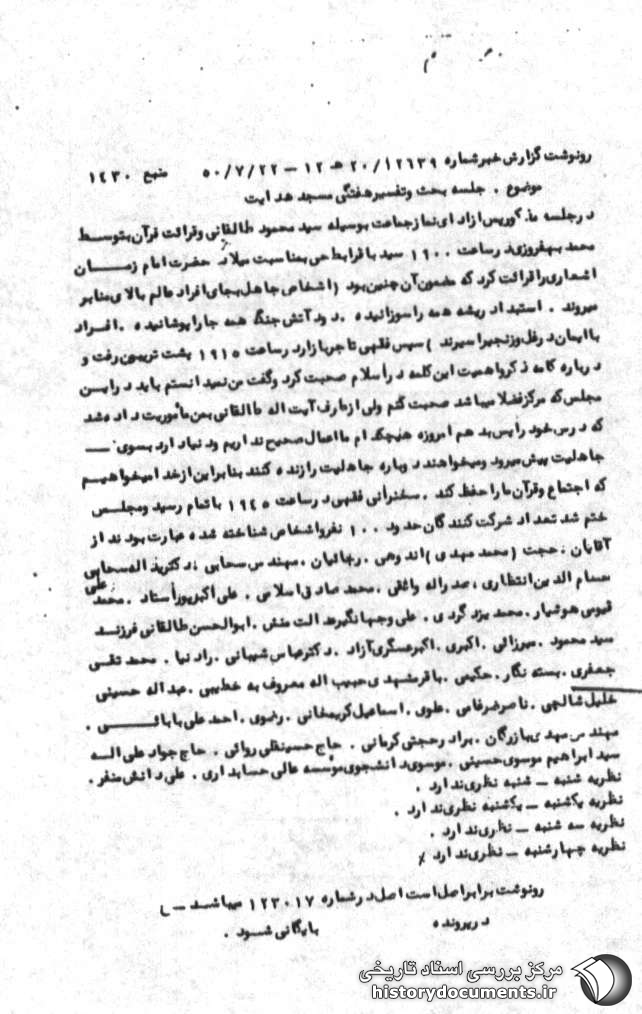 رونوشت گزارش خبر شماره ۲۰/۱۲۶۳۹ هـ ۱۲ – ۵۰/۷/۲۲ منبع ۱۴۳۰
موضوع . جلسه بحث و تفسیر هفتگی مسجد هدایت
در جلسه مذکور پس از ادای نماز جماعت بوسیله سید محمود طالقانی و قرائت قرآن بتوسط
محمد بهفروزی در ساعت ۱۹۰۰ سید باقر ابطحی بمناسبت میلاد حضرت امام زمان
اشعاری را قرائت کرد که مضمون آن چنین بود (اشخاص جاهل بجای افراد عالم بالای منابر
میروند . استبداد ریشه همه را سوزانیده . دود آتش جنگ همه جا را پوشانیده . افراد
با ایمان در غل و زنجیر اسیرند ) سپس فقهی تاجر بازار در ساعت ۱۹۱۵ پشت تریبون رفت و
درباره کلمه ذکر و اهمیت این کلمه در اسلام صحبت کرد و گفت من نمیدانستم باید در این
مجلس که مرکز فضلا میباشد صحبت کنم ولی از طرف آیت اله طالقانی بمن مأموریت داده شد
که درس خود را پس بدهم امروزه هیچکدام ما اعمال صحیح نداریم و دنیا دارد بسوی
جاهلیت پیش میرود و میخواهند دوباره جاهلیت را زنده کنند بنابراین از خدا میخواهیم
که اجتماع و قرآن ما را حفظ کند . سخنرانی فقهی در ساعت ۱۹۴۵ باتمام رسید و مجلس
ختم شد تعداد شرکت کنندگان حدود ۱۰۰ نفر و اشخاص شناخته شده عبارت بودند از
آقایان : حجت (محمد مهدی) اندوهی . رجالیان . مهندس سحابی . دکتر یداله سحابی
حسام الدین انتظاری ، صدراله واثقی . محمد صادق اسلامی . علی اکبر پور استاد . محمد علی
قیومی هوشیار . محمد یزدگردی . علی و جهانگیر عدالت منش . ابوالحسن طالقانی فرزند
سید محمود . میرزائی . اکبری . اکبر عسگری آزاد . دکتر عباس شیبانی . رادنیا . محمد تقی
جعفری . بسته نگار . حکیمی . باقر مشهدی حبیب اله معروف به خطیبی . عبداله حسینی
خلیل شالچی . ناصر ضرغامی . علوی . اسماعیل کریمخانی . رضوی . احمد علی بابائی .
مهندس مهدی بازرگان . برادر حجتی کرمانی . حاج حسینقلی روائی . حاج جواد علی اله
سید ابراهیم موسوی حسینی . موسوی دانشجوی مؤسسه عالی حسابداری . علی دانش منفر .
نظریه شنبه – شنبه نظری ندارد .
نظریه یکشنبه – یکشنبه نظری ندارد .
نظریه سه شنبه – نظری ندارد .
نظریه چهارشنبه – نظری ندارد
رونوشت برابر اصل است اصل در شماره ۱۲۳۰۱۷ میباشد –
در پرونده بایگانی شود .
مرکز بررسی اسناد تاریخی
historydocuments.ir